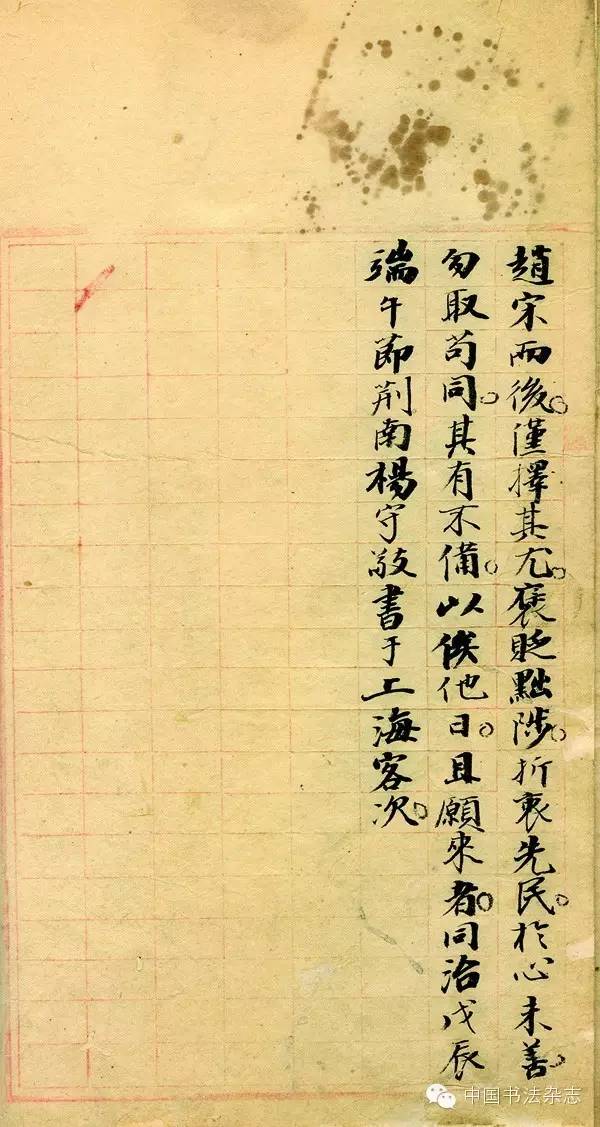 趙宋而後。僅擇其尤。褒貶黜陟。折衷先民。於心未善。
勿取苟同。其有不備。以俟他日。且願來者。同治戊辰
端午節荊南楊守敬書于上海客次。
中国书法杂志